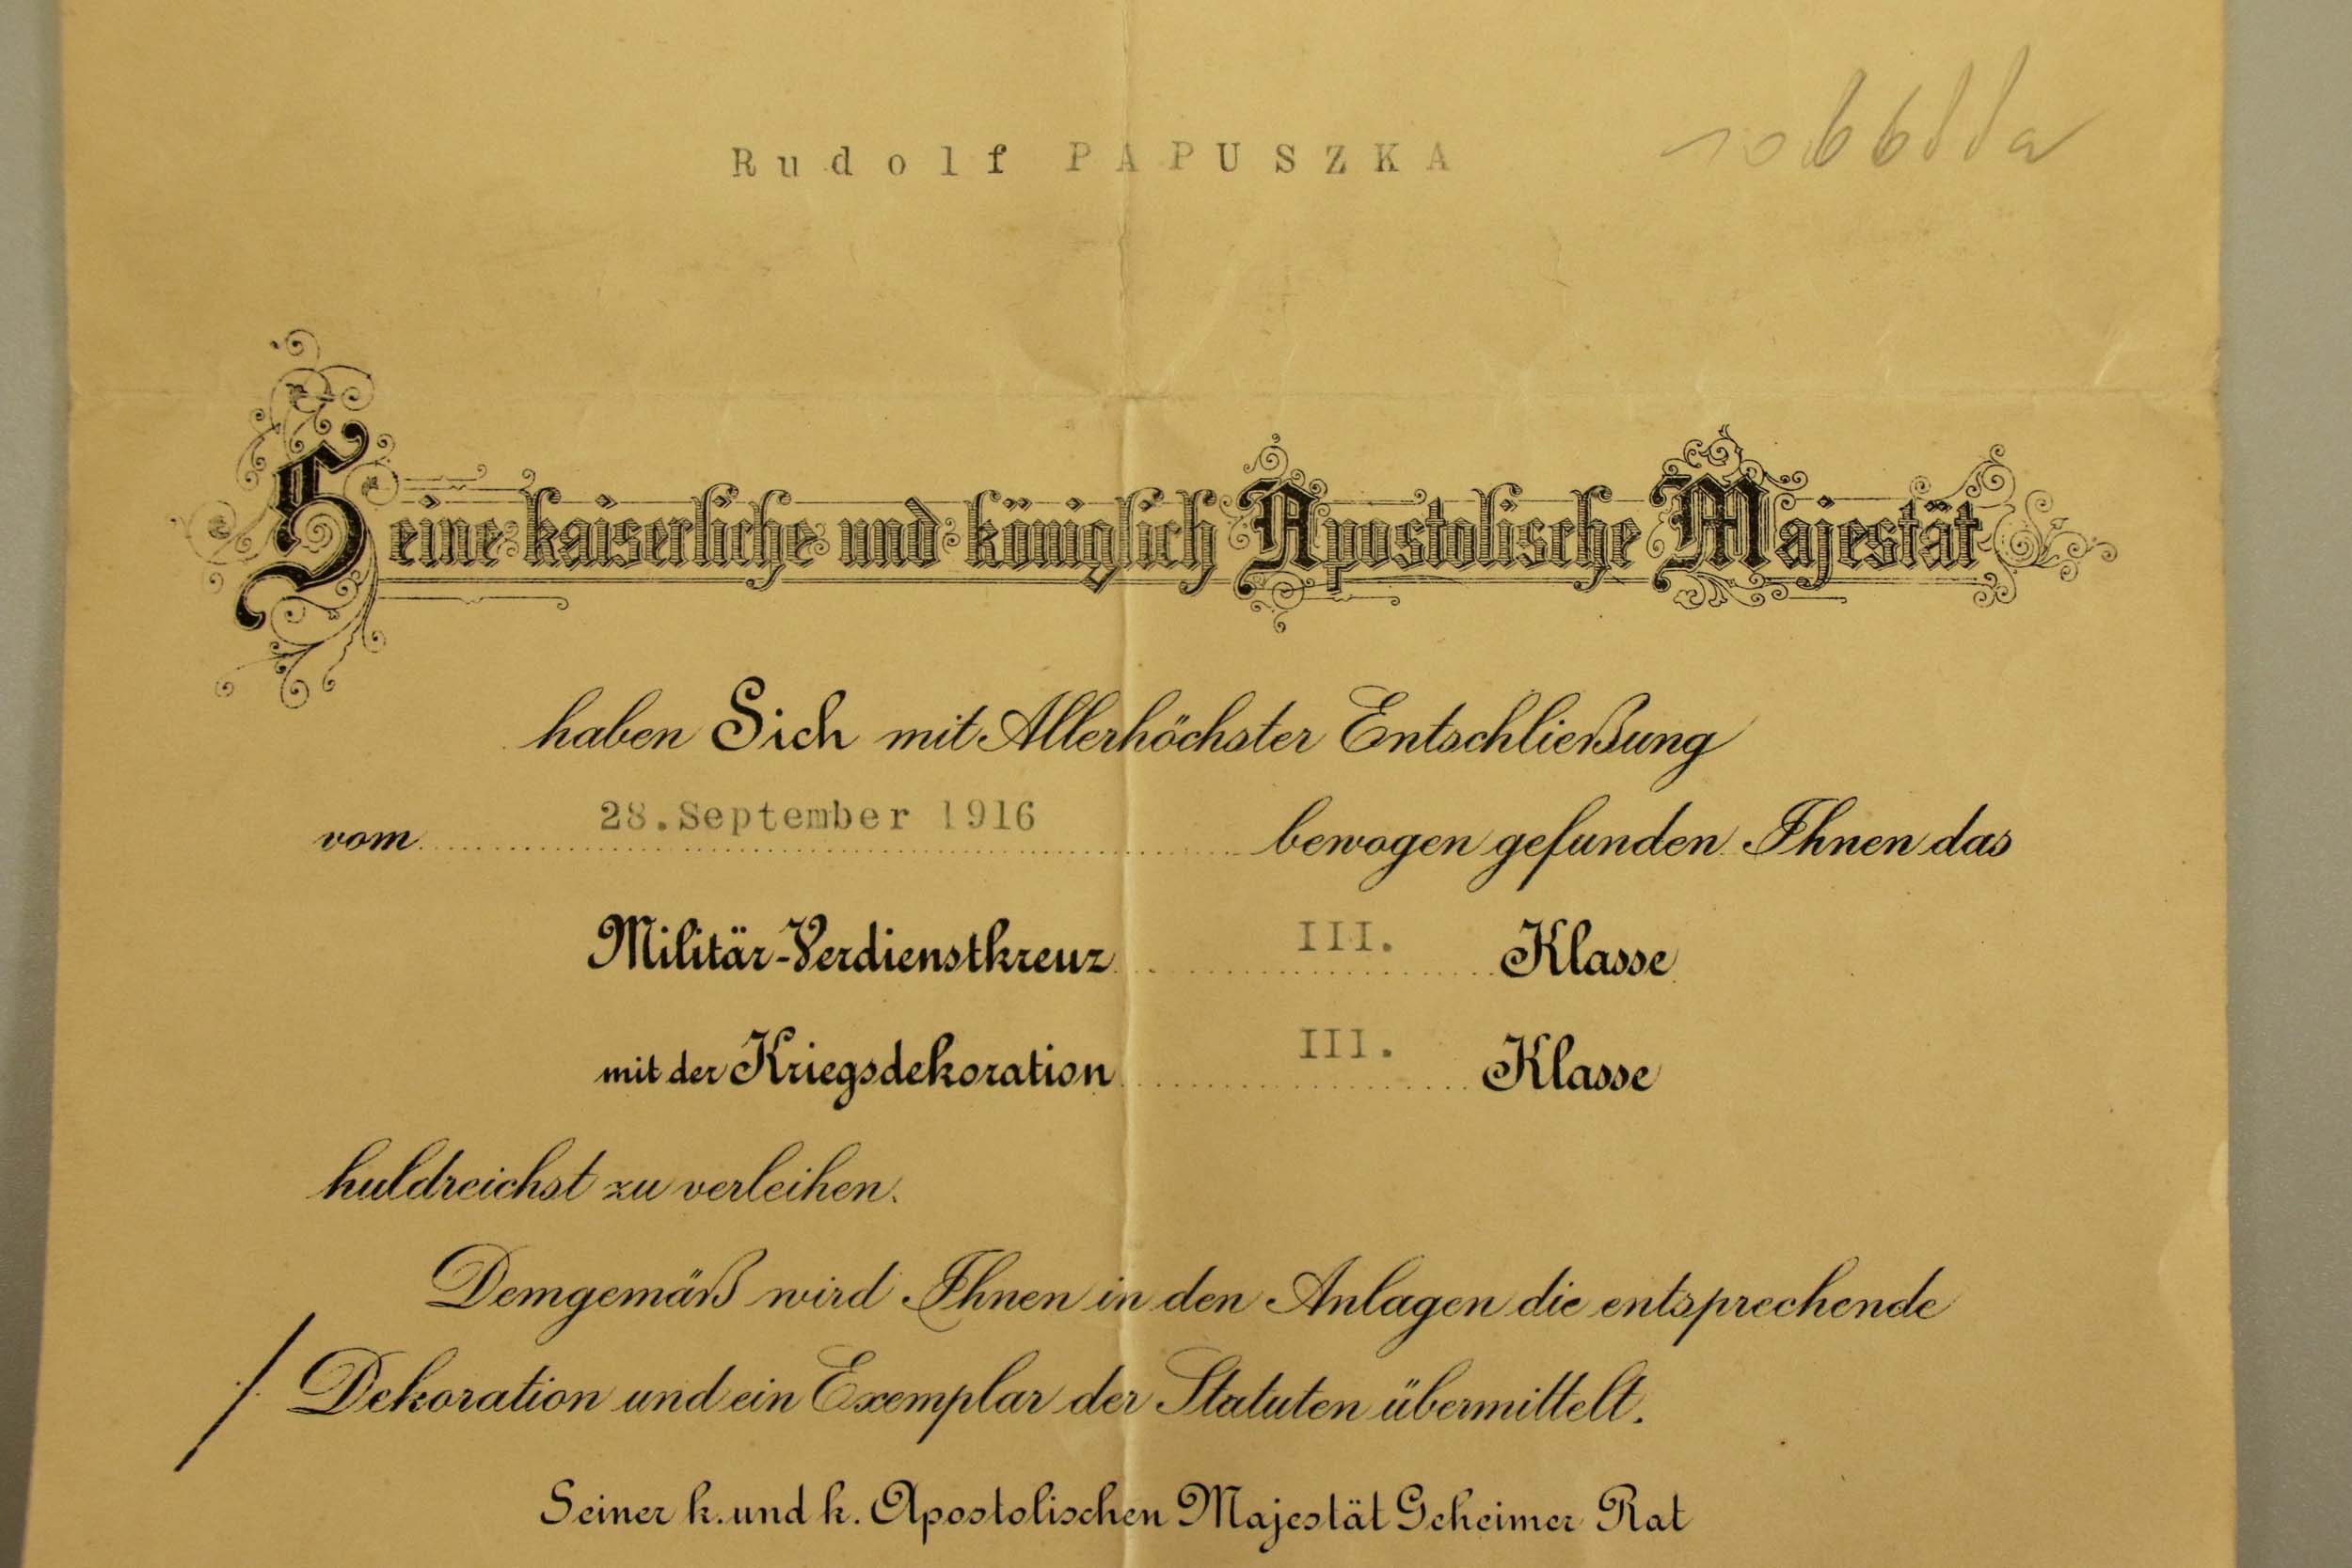 Rudolf PAPUSZKA
Seine kaiserliche und königlich Apostolische Majestät
haben Sich mit Allerhöchster Entschließung
vom 28. September 1916 bewogen gefunden Ihnen das
Militär-Verdienstkreuz III. Klasse
mit der Kriegsdekoration III. Klasse
huldreichst zu verleihen.
Demgemäß wird Ihnen in den Anlagen die entsprechende
Dekoration und ein Exemplar der Statuten übermittelt.
Seiner k. und k. Apostolischen Majestät Geheimer Rat